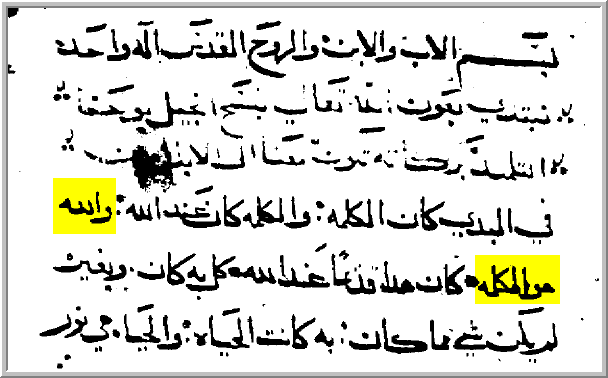 بسم الاب والابن والروح القدس اله واحد
نبتدي بعون الله تعالى بنسخ انجيل يوحنا
التلميذ بركاته تكون معنا الى الابد
في البدي كان الكلمه: والكلمه كان عند الله: والله
هو الكلمه • كان هدا قديما عند الله • كل به كان. وبغيره
لم يكن شي مما كان: به كانت الحياه: والحياه هي نور